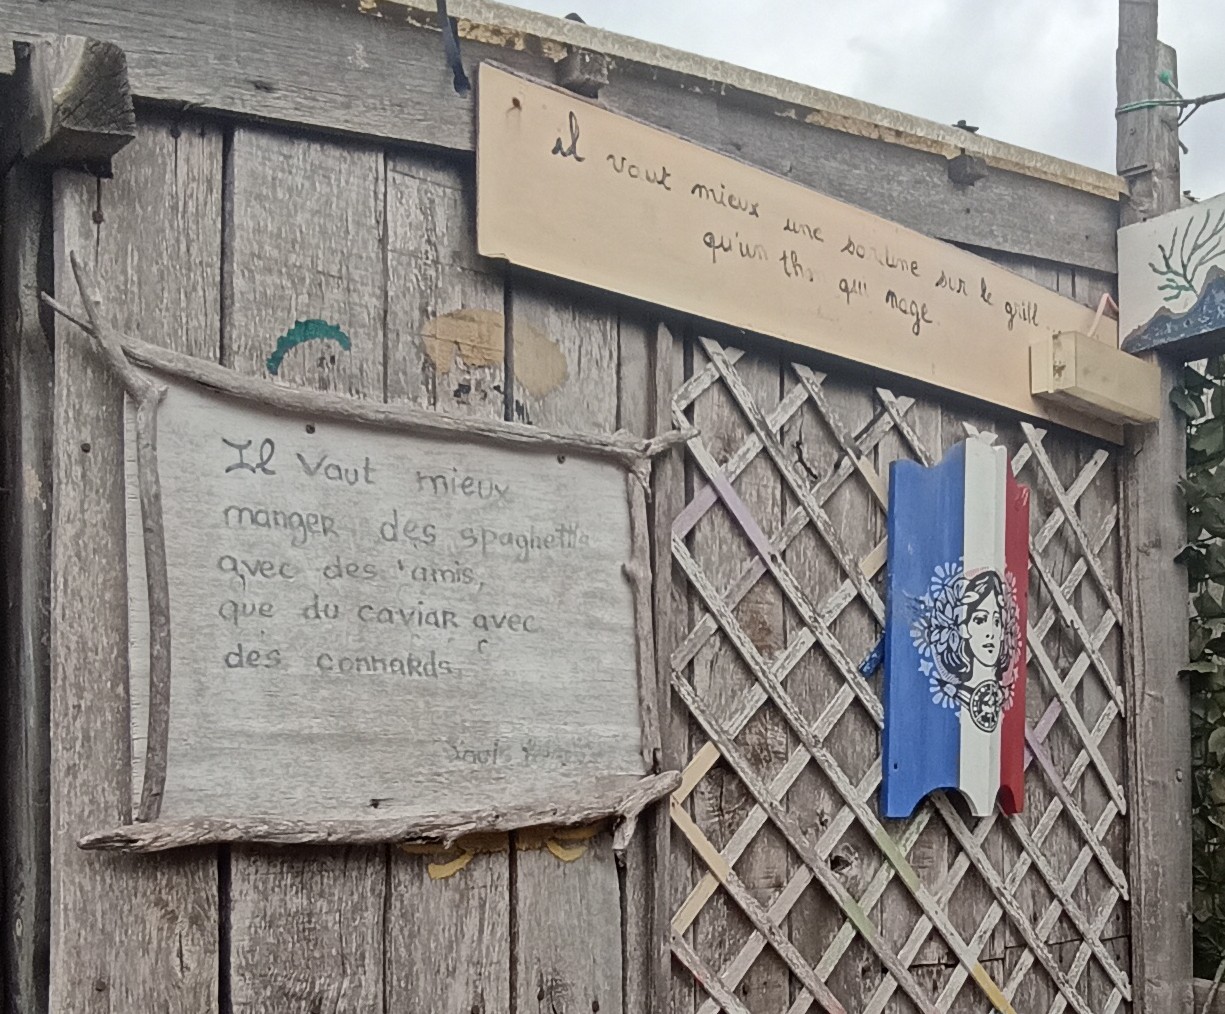 il vaut mieux une sardine sur le grill
qu'un thon qui nage
Il Vaut mieux
manger des spaghettis
avec des amis,
que du caviar avec
des connards.